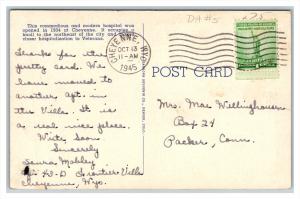 This commodious and modern hospital was
opened in 1934 at Cheyenne. It occupies a
to the northeast of the city and
closer hospitalization to Veterans.
DA #5
CHEYENNE WYO.
OCT 13
11-AM
1945
POST CARD
Thanks for the
pretty card. We
have moved to
another apt. in
the Ville. It is
a real nice place.
Write Soon
Sincerely
Laura Mobley
Apt 43-D Frontier Ville
Cheyenne, Wyo.
Mrs. Mae Wellinghausen
Box 24
Packer, Conn.